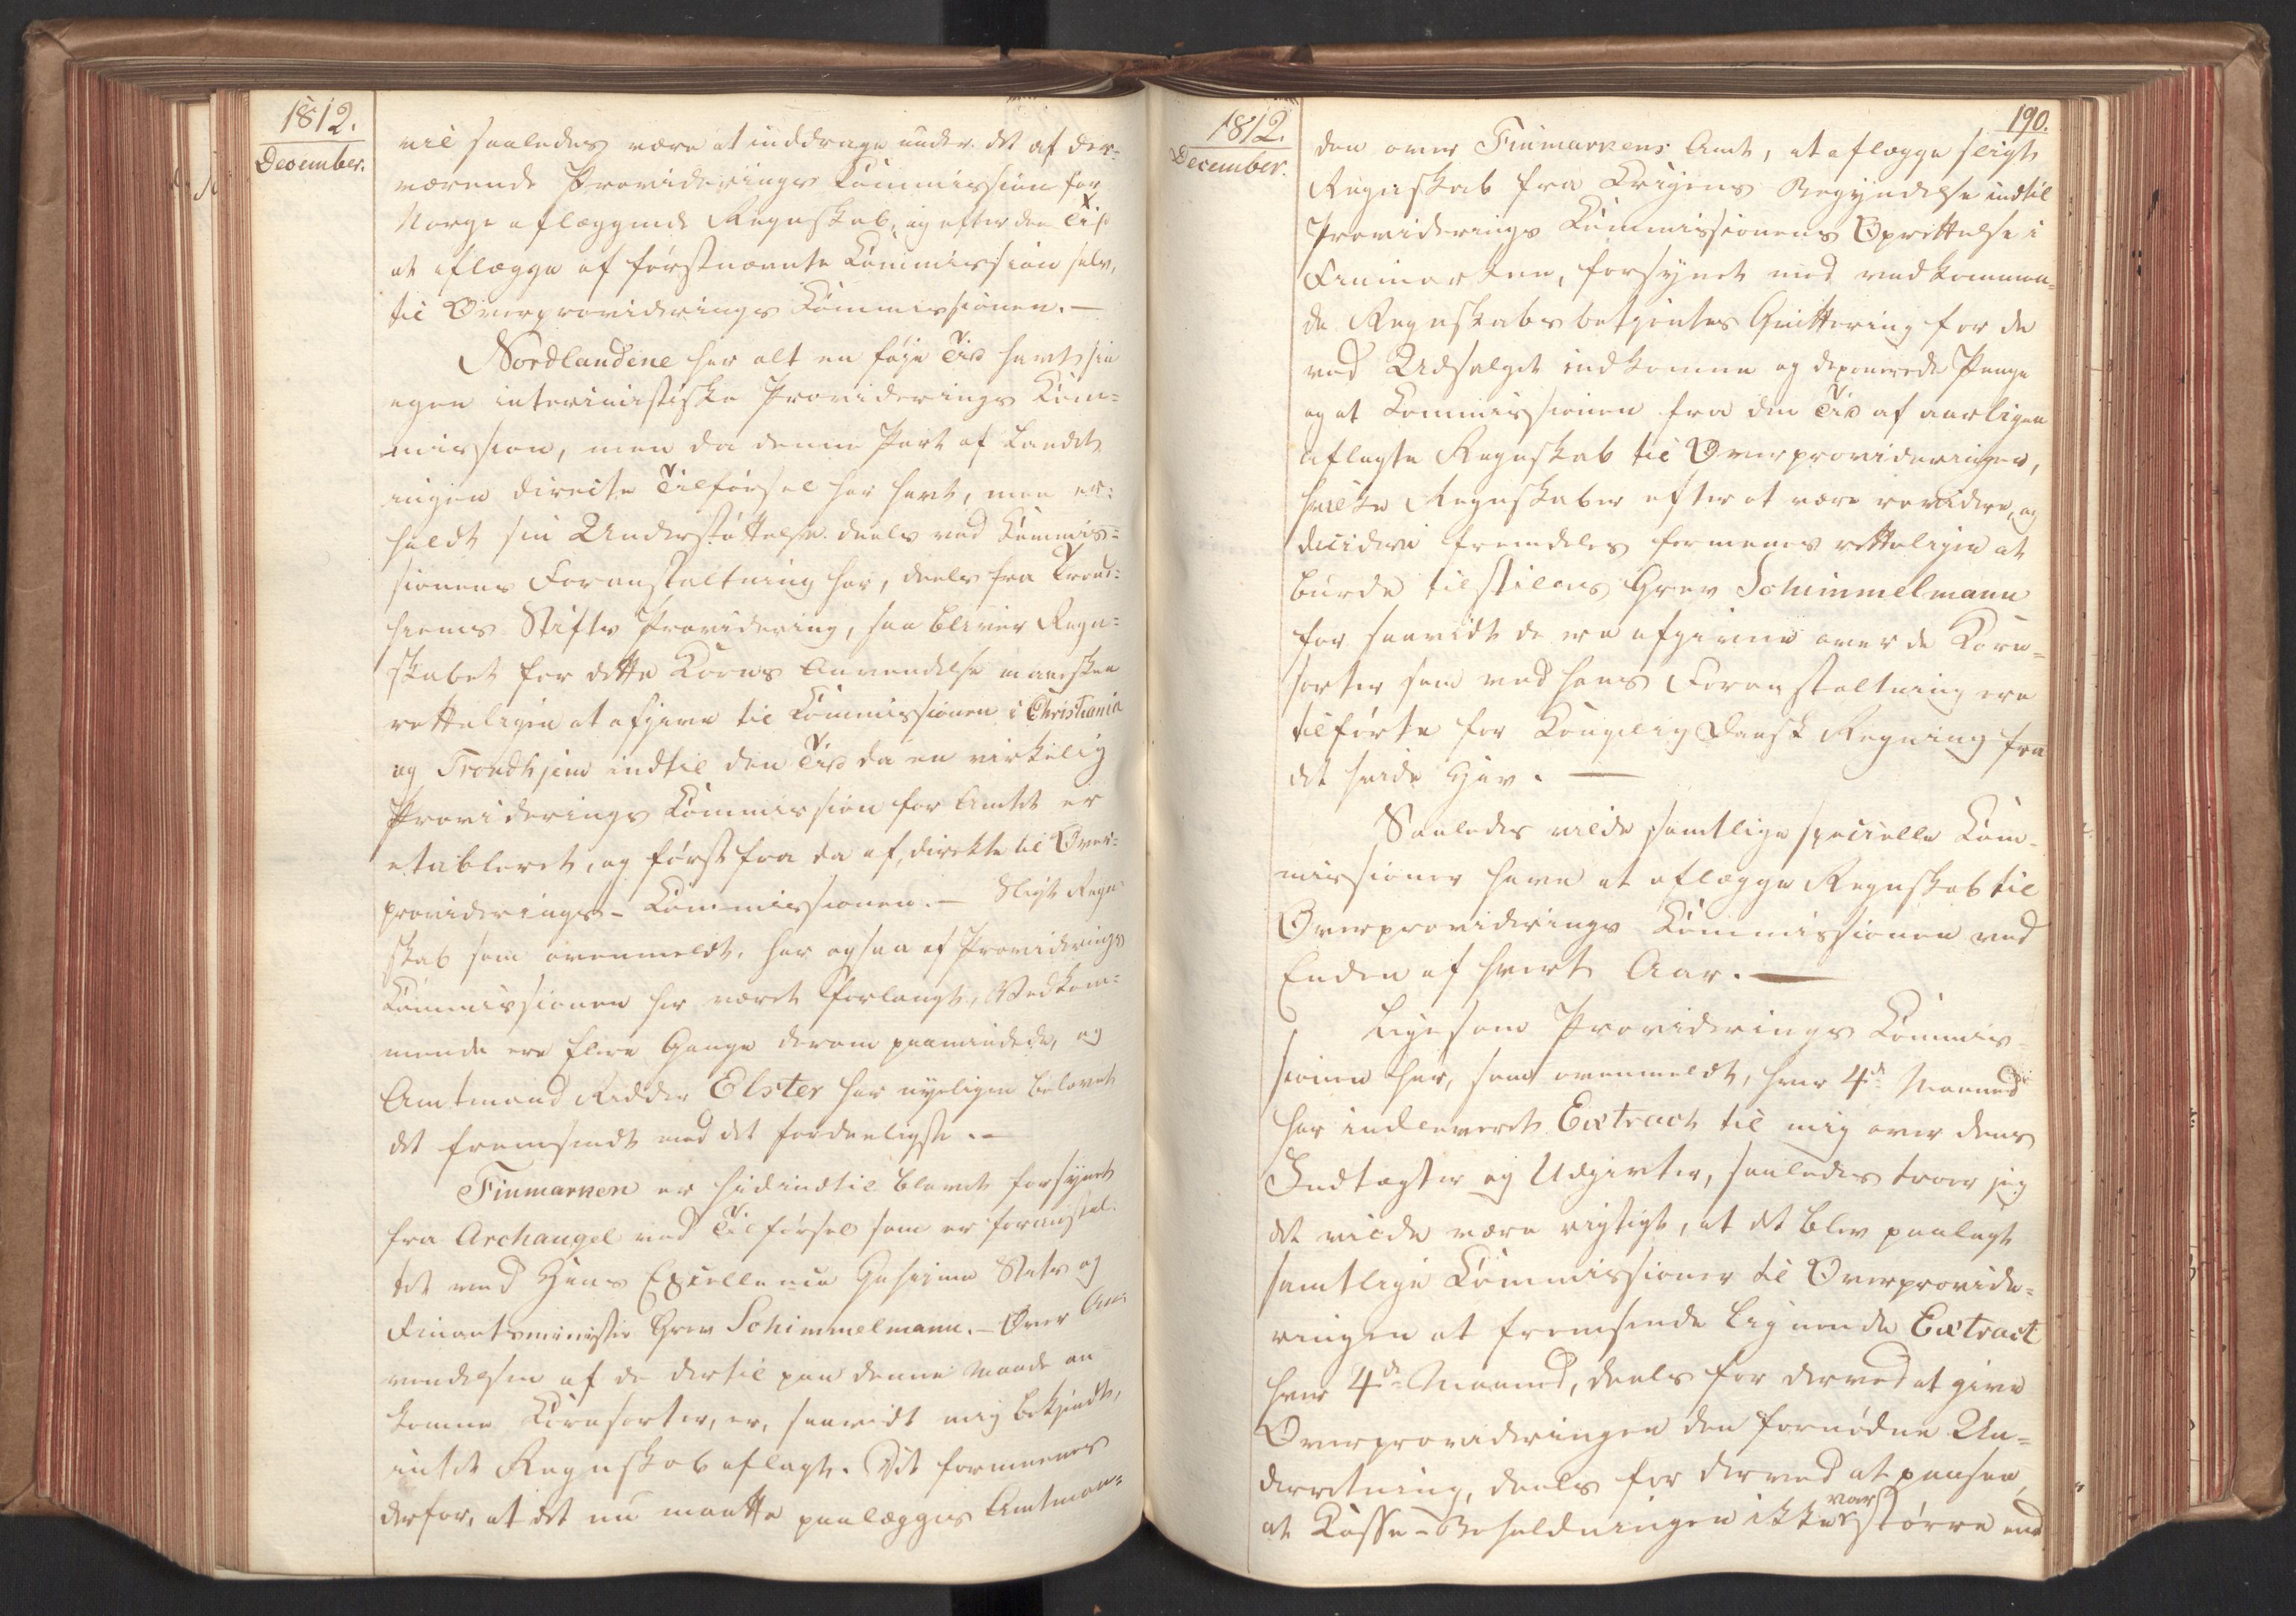 1812.
December.
vil saaledes være at inddrage under det af der=
værende Providerings Kommission for
Norge aflæggende Regnskab, og efter den Tid
at aflægge af førstnævnte Kommission selv,
til Overproviderings Kommissionen. —
Nordlandene har alt en føje Tid havt sin
egen interimistiske Providerings Kom=
mission, men da denne Part af Landet
ingen directe Tilførsel har havt, men er=
holdt sin Understøttelse deels ved Kommis=
sionens Foranstaltning her, deels fra Trond=
hiems Stifts Providering, saa bliver Regn=
skabet for dette Korns Anvendelse maaskee
retteligen at afgive til Kommissionen i Christiania
og Trondhjem indtil den Tid da en virkelig
Providerings Kommission for Amtet er
etableret, og først fra da af, direkte til Over=
providerings-Kommissionen. — Sligt Regn=
skab som ovenmeldt, har ogsaa af Provideringss
Kommissionen her været forlangt, Vedkom=
mende ere flere Gange derom paamindede, og
Amtmand Ridder Elster har nyeligen belovet
det fremsendt med det forderligste. —
Finmarken er hidindtil blevet forsynet
fra Archangel ved Tilførsel som er foranstal=
tet ved Hans Excellence Geheime Stats og
Finantsminister Grev Schimmelmann. — Over An=
vendelsen af de dertil paa denne Maade an=
komne Kornsorter, er, saavidt mig bekjendt,
intet Regnskab aflagt. Det formenes
derfor, at det nu maatte paalægges Amtman=
1812.
December.
190.
den over Finmarkens Amt, at aflægge sligt
Regnskab fra Krigens Begyndelse indtil
Provideringss Kommissionens Oprettelse i
Finmarken, forsynet med vedkommen=
de Regnskabsbetjentes Qvittering for de
ved Udsalget indkomne og deponerede Penge
og at Kommissionen fra den Tid af aarligen
aflagte Regnskab til Overprovideringen,
hvilke Regnskaber efter at være revidere, og
decidere fremdeles formenes retteligen at
burde tilstilles Grev Schimmelmann
for saavidt de ere afgivne over de Korn=
sorter som ved hans Foranstaltning ere
tilførte for Kongelig Dansk Regning fra
det hvide Hav. —
Saaledes vilde samtlige specielle Kom=
missioner have at aflægge Regnskab til
Overprovideringss Kommissionen ved
Enden af hvert Aar. —
Ligesom Providerings Kommis=
sionen her, som ovenmeldt, hver 4de Maaned
har indleveret Extract til mig over dens
Indtægter og Udgivter, saaledes troer jeg
det vilde være rigtigt, at det blev paalagt
samtlige Kommissioner til Overprovide=
ringen at fremsende lignende Extract
hver 4de Maaned, deels for derved at give
Overprovideringen den fornødne Un=
derretning, deels for derved at paasee,
at Kasse-Beholdningen ikke var større end